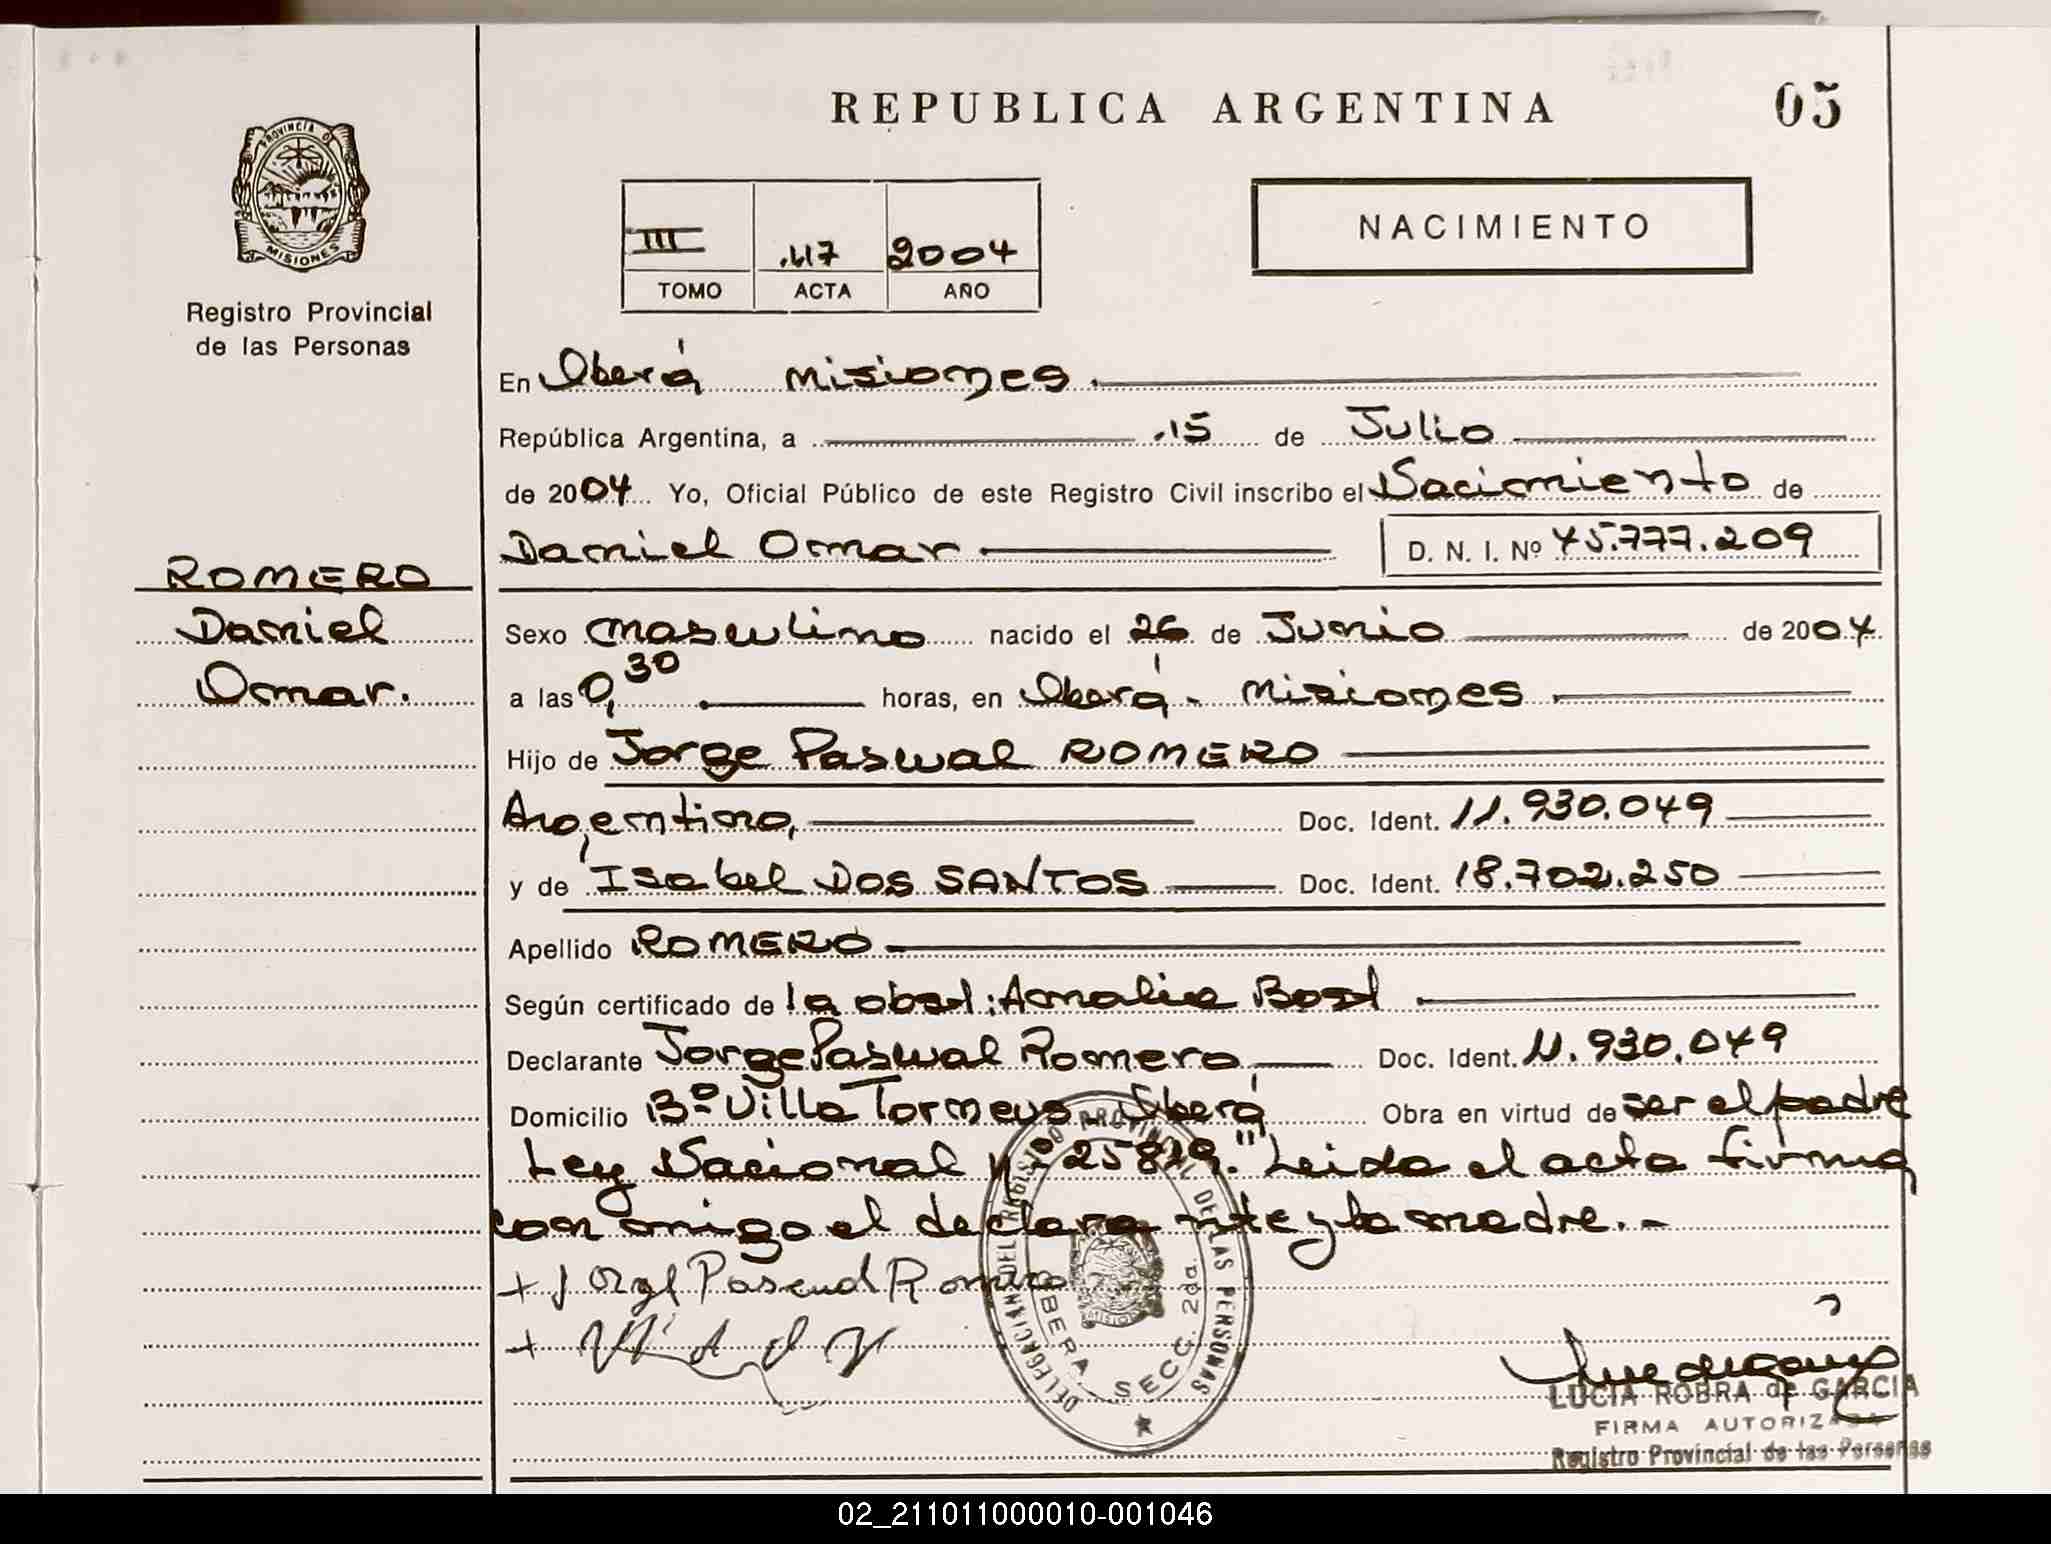 REPUBLICA ARGENTINA
05
PROVINCIA DE
MISIONES
Registro Provincial
de las Personas
III 417 2004
TOMO ACTA AÑO
NACIMIENTO
En Oberá Misiones.
República Argentina, a 15 de Julio
de 2004 Yo, Oficial Público de este Registro Civil inscribo el Nacimiento de
Daniel Omar D. N. I. Nº 45.777.209
ROMERO
Daniel
Omar.
Sexo masculino nacido el 26 de Junio de 2004
a las 0,30 horas, en Oberá - Misiones
Hijo de Jorge Pascual ROMERO
Argentino, Doc. Ident. 11.930.049
y de Isabel DOS SANTOS Doc. Ident. 18.702.250
Apellido ROMERO
Según certificado de la obst: Amalia Bost
Declarante Jorge Pascual Romero Doc. Ident. 11.930.049
Domicilio Bº Villa Torneus Oberá Obra en virtud de ser el padre
Ley Nacional nº 25819." Leida el acta firma
con migo el declara nte y la madre. -
+ Jorge Pascual Romero
DELEGACIÓN DEL REGISTRO PROVINCIAL DE LAS PERSONAS
OBERA SECC. 2da.
LUCIA ROBRA de GARCIA
FIRMA AUTORIZADA
Registro Provincial de las Personas
02_211011000010-001046